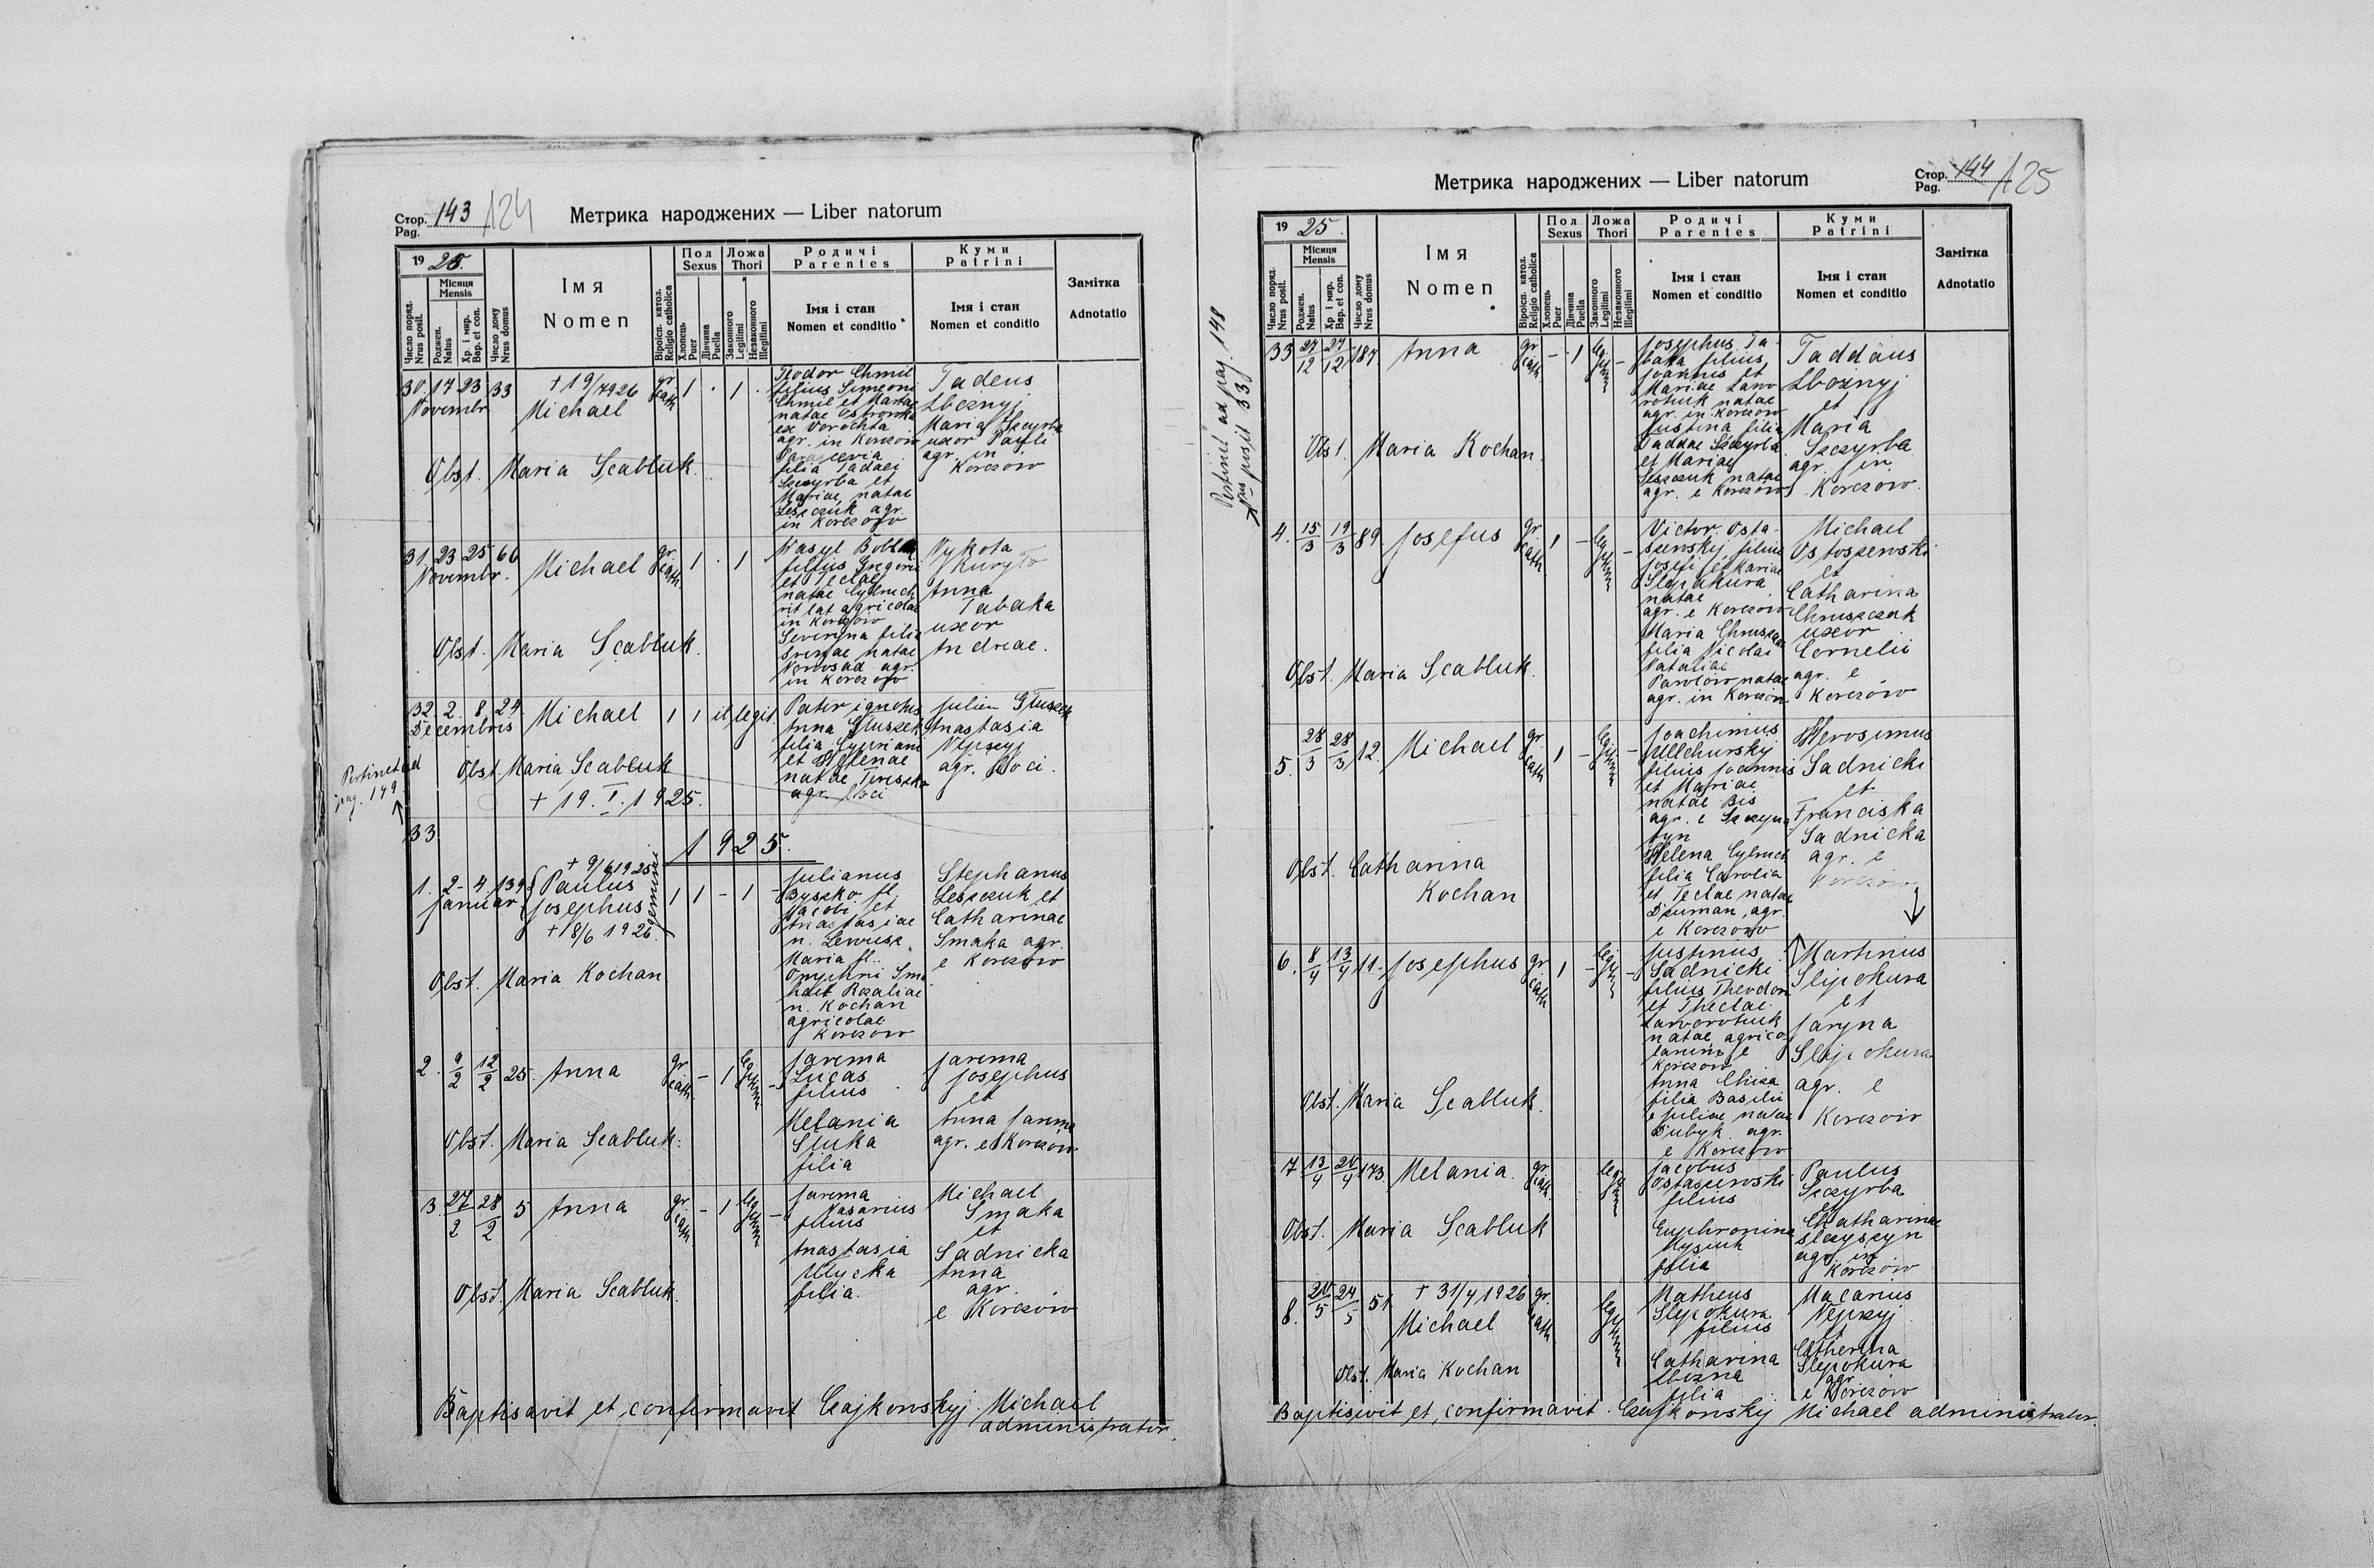 Стор. 143 / 124
Pag.
Метрика народжених — Liber natorum
19 25.
Місяця
Mensis
Число поряд.
Nrus posit.
Роджен.
Natus
Хр. і мир.
Bap. et con.
Число дому
Nrus domus
Імя
Nomen
Віроісп. катол.
Religio catholica
Пол
Sexus
Хлопець
Puer
Дівчина
Puella
Ложа
Thori
Законного
Legitimi
Незаконного
Illegitimi
Родичі
Parentes
Імя і стан
Nomen et conditio
Куми
Patrini
Імя і стан
Nomen et conditio
Замітка
Adnotatio
30. 17 23 33
Novembr.
+ 19/7926
Michael
gr.
cath.
1 . 1 .
Teodor Chmil
filius Simeoni
Chmil et Martae
natae
ex Worochta
agr. in Korczów
Parascevia
filia Tadaei
Szczyrba et
Mariae natae
Leszczuk agr.
in Korczów
Tadeus
Zboznyj
Maria Szczyrba
uxor Pauli
agr. in
Korczów
Obst. Maria Scabluk.
31. 23 25 66
Novembr.
Michael
gr.
cath.
1 . 1
Wasyl
filius Gregorii
et Teclae
natae
agricolae
in Korczów
Severina filia
natae
Nowosad agr.
in Korczów
Nykola
Kuryło
Anna
Tabaka
uxor
Andreae.
Obst. Maria Scabluk.
32. 2. 8. 24
Decembris
Michael
1 1 illegit.
Pater ignotus
Anna Głuszek
filia Cypriani
et Helenae
natae Tereszko
agr. loci
Julian Głuszek
Anastasia
Nepszyj
agr. loci.
Obst. Maria Scabluk
+ 19. I. 1925.
Pertinet ad
pag. 149
33.
1925.
1. 2- 4. 139
Januar
+ 9/6 1925
Paulus
Josephus
+ 18/6 1926.
gemini
1 1 - 1 -
Julianus
Byszko fl.
Jacobi et
Anastasiae
n. Lewusz.
Maria fl.
Onyphrii
et Rozaliae
n. Kochan
agricolae
Korczów
Stephanus
Leszczuk et
Catharinae
Smaka agr.
e Korczów
Obst. Maria Kochan
2. 9/2 12/2 25. Anna
gr.
cath.
- 1 legitimi -
Jarema
Lucas
filius
Melania
Sluka
filia
Jarema
Josephus
et
Anna Jarema
agr. e Korczów
Obst. Maria Scabluk.
3. 27/2 28/2 5 Anna
gr.
cath.
- 1 legitimi -
Jarema
Kasarius
filius
Anastasia
Ulycka
filia.
Michael
Smaka
et
Sadnicka
Anna
agr.
e Korczów
Obst. Maria Scabluk.
Baptisavit et confirmavit Czajkowskyj Michael
administrator.
Стор. 144 / 125
Pag.
Метрика народжених — Liber natorum
19 25.
Місяця
Mensis
Число поряд.
Nrus posit.
Роджен.
Natus
Хр. і мир.
Bap. et con.
Число дому
Nrus domus
Імя
Nomen
Віроісп. катол.
Religio catholica
Пол
Sexus
Хлопець
Puer
Дівчина
Puella
Ложа
Thori
Законного
Legitimi
Незаконного
Illegitimi
Родичі
Parentes
Імя і стан
Nomen et conditio
Куми
Patrini
Імя і стан
Nomen et conditio
Замітка
Adnotatio
Pertinet ad pag. 148
Nrus posit 33
33 24/12 27/12 187. Anna
gr.
cath.
- 1 legitimi -
Josephus Ta-
baka filius
Joannis et
Mariae Lawo-
rotiuk natae
agr. in Korczów
Justina filia
Taddae Szczyrba
et Mariae
Leszczuk natae
agr. e Korczów
Taddäus
Zboznyj
et
Maria
Szczyrba
agr. in
Korczów.
Obst. Maria Kochan.
4. 15/3 19/3 89 Josefus
gr.
cath.
1 - legitimi -
Victor Osta-
szewskyj filius
Josefi et Mariae
Slipakura
natae
agr. e Korczów
Maria Chruszczak
filia Nicolai
Nataliae
Pawłów natae
agr. in Korczów
Michael
Ostoszewski
et
Catharina
Chruszczak
uxor
Cornelii
agr. e
Korczów
Obst. Maria Scabluk.
5. 28/3 28/3 12. Michael
gr.
cath.
1 - legitimi -
Joachimus
filius Joannis
et Mariae
natae Bis
agr. e
Helena
filia Carolia
et Teclae natae
Dziuman, agr.
e Korczów
Hierosimus
Sadnicki
et
Franciska
Sadnicka
agr. e
Korczów
Obst. Catharina
Kochan
6. 8/4 13/4 11. Josephus
gr.
cath.
1 - legitimi -
Justinus
Sadnicki
filius Theodori
et Theclae
Laworotiuk
natae, agrico-
larum e
Korczów
Anna
filia Basilii
e Juliae natae
Dubyk agr.
e Korczów
Martinus
Slipokura
et
Jaryna
Slipokura
agr. e
Korczów
Obst. Maria Scabluk.
7 13/4 20/4 173. Melania.
gr.
cath.
legitimi
Jacobus
Ostaszewski
filius
Euphronina
Mysiuk
filia
Paulus
Szczyrba
et
Catharinae
agr. in
Korczów
Obst. Maria Scabluk
8. 20/5 24/5 51
+ 31/7 1926
Michael
gr.
cath.
legitimi
Matheus
Slipokura
filius
Catharina
Zbozna
filia
Macarius
Nepszyj
et
Catherina
Slepokura
agr.
e Korczów
Obst. Maria Kochan
Baptisivit et confirmavit Czajkowskyj Michael administrator.